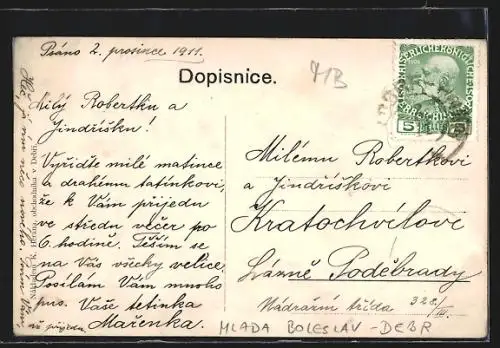 Psáno 2. prosince 1911.
Dopisnice.
41B
Milý Robertku a
Jindříšku!
Vyřiďte milé matince
a drahému tatínkovi,
že k Vám přijedu
ve středu večer po
6. hodině. Těším se
na Vás všecky velice.
Posílám Vám mnoho
pus. Vaše tetinka
Mařenka.
až přijedu.
Nákladem K. Heřína, obchodníka v Debři.
KAISERLICHE KÖNIGLICHE ÖSTERR.
5 5
Milému Robertkovi
a Jindříškovi
Kratochvílovi
Lázně Poděbrady
Nádražní třída 328/III.
MLADA BOLESLAV - DEBR